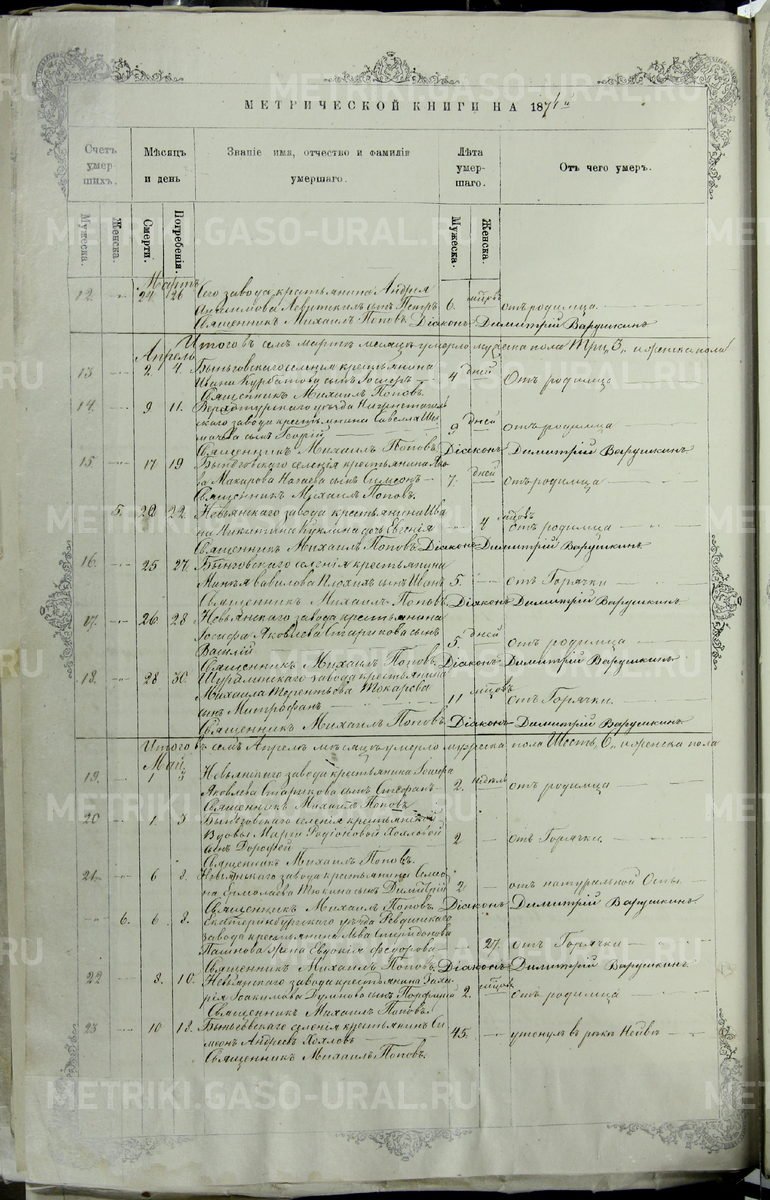 МЕТРИЧЕСКОЙ КНИГИ НА 1871й
Счетъ умер- шихъ.
Мѣсяцъ и день
Званіе имя, отчество и фамилія умершаго.
Лѣта умер- шаго.
Отъ чего умеръ.
Мужеска.
Женска.
Смерти.
Погребенія.
Мужеска.
Женска.
Мартъ
12. 24 26 Сего завода крестьянина Андрея
сынъ Петръ 6. отъ родимца
Священникъ Михаилъ Поповъ. Діаконъ Димитрій Варушкинъ
Итого въ семъ мартѣ месяцѣ умерло мужеска пола Три, 3, и женска пола
Апрель
13. 2 4. Быньговскаго селенія крестьянина
Ивана Курбатова сынъ Іосифъ 4 дней Отъ родимца
Священникъ Михаилъ Поповъ.
14. 9 11. Верхотурскаго уѣзда Нижнетагиль-
скаго завода крестьянина Савелія
сынъ Георгій 9 дней отъ родимца
Священникъ Михаилъ Поповъ Діаконъ Димитрій Варушкинъ
15. 17 19 Быньговскаго селенія крестьянина
Макарова сынъ Симеонъ 7. дней отъ родимца
Священникъ Михаилъ Поповъ.
5. 20 22. Невьянскаго завода крестьянина Ива-
на Никитина дочь Евгенія 4 мѣсцовъ отъ родимца
Священникъ Михаилъ Поповъ Діаконъ Димитрій Варушкинъ
16. 25 27. Быньговскаго селенія крестьянина
Вавилова сынъ Иванъ 5. отъ Горячки
Священникъ Михаилъ Поповъ Діаконъ Димитрій Варушкинъ
17. 26 28 Невьянскаго завода крестьянина
Іосифа Яковлева Старикова сынъ
Василій 5. дней отъ родимца
Священникъ Михаилъ Поповъ. Діаконъ Димитрій Варушкинъ
18. 28 30. Шуралинскаго завода крестьянина
Михаила Терентьева Токарева
сынъ Митрофанъ 11 мѣсцовъ отъ Горячки.
Священникъ Михаилъ Поповъ. Діаконъ Димитрій Варушкинъ
Итого въ семъ Апрелѣ месяцѣ умерло мужеска пола Шесть, 6, и женска пола
Май
19. 1 3 Невьянскаго завода крестьянина Іосифа
Яковлева Старикова сынъ Стефанъ 2. недель отъ родимца
Священникъ Михаилъ Поповъ
20 1 3 Быньговскаго селенія крестьянской
вдовы Маріи Родіоновой Хохловой
сынъ Дорофей 2 отъ Горячки.
Священникъ Михаилъ Поповъ.
21 6 8. Невьянскаго завода крестьянина Семе-
на Ермолаева Тюкина сынъ Димитрій 2. отъ натуральной Оспы.
Священникъ Михаилъ Поповъ Діаконъ Димитрій Варушкинъ
6. 6 8. Екатеринбургскаго уѣзда Ревдинскаго
завода крестьянина Льва Спиридонова
жена Евдокія Федорова 27. отъ Горячки
Священникъ Михаилъ Поповъ Діаконъ Димитрій Варушкинъ
22 8. 10. Невьянскаго завода крестьянина
Іоакимова сынъ Порфирій 2. мѣсцовъ отъ родимца
Священникъ Михаилъ Поповъ.
23 10 12. Быньговскаго селенія крестьянинъ Си-
меонъ Андреевъ Хохловъ 45. утонулъ въ рекѣ Нейвѣ
Священникъ Михаилъ Поповъ.
METRIKI.GASO-URAL.RU